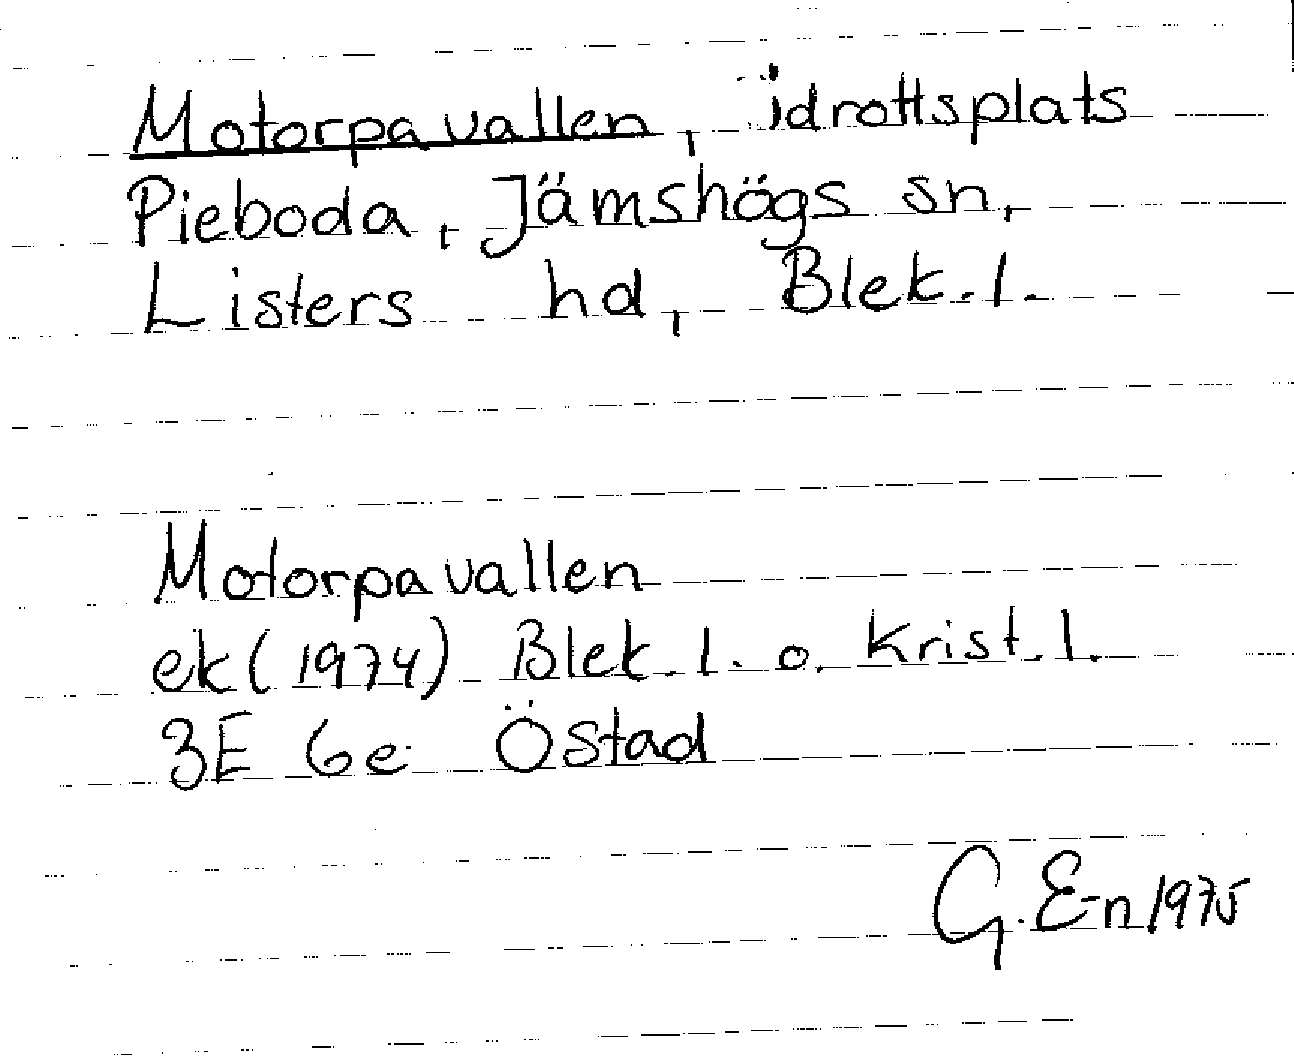 Motorpavallen, idrottsplats
Pieboda, Jämshögs sn,
Listers hd, Blek. l.
Motorpavallen
ek (1974) Blek. l. o. Krist. l.
3E 6e Östad
G. E-n 1975